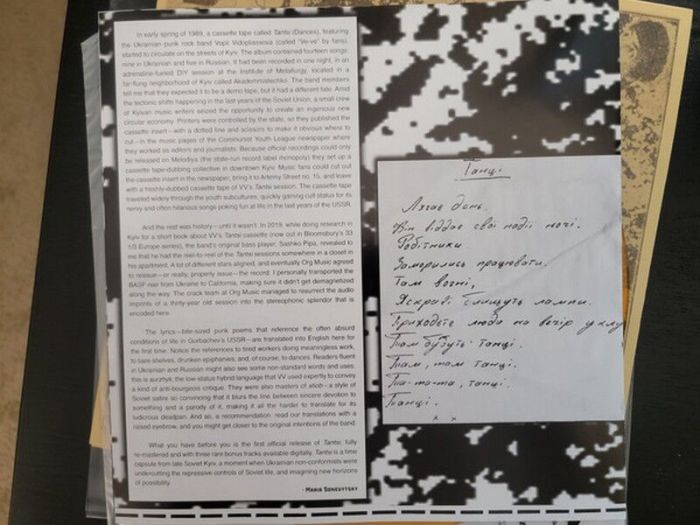 In early spring of 1989, a cassette tape called Tantsi (Dances), featuring
the Ukrainian punk rock band Vopli Vidopliassova (called "Ve-ve" by fans),
started to circulate on the streets of Kyiv. The album contained fourteen songs:
nine in Ukrainian and five in Russian. It had been recorded in one night, in an
adrenaline-fueled DIY session at the Institute of Metallurgy, located in a
far-flung neighborhood of Kyiv called Akademmistechko. The band members
tell me that they expected it to be a demo tape, but it had a different fate. Amid
the tectonic shifts happening in the last years of the Soviet Union, a small crew
of Kyivan music writers seized the opportunity to create an ingenious new
circular economy. Printers were controlled by the state, so they published the
cassette insert—with a dotted line and scissors to make it obvious where to
cut—in the music pages of the Communist Youth League newspaper where
they worked as editors and journalists. Because official recordings could only
be released on Melodiya (the state-run record label monopoly) they set up a
cassette tape-dubbing collective in downtown Kyiv. Music fans could cut out
the cassette insert in the newspaper, bring it to Artemy Street no. 15, and leave
with a freshly-dubbed cassette tape of VV's Tantsi session. The cassette tape
traveled widely through the youth subcultures, quickly gaining cult status for its
nervy and often hilarious songs poking fun at life in the last years of the USSR.
And the rest was history—until it wasn't. In 2019, while doing research in
Kyiv for a short book about VV's Tantsi cassette (now out in Bloomsbury's 33
1/3 Europe series), the band's original bass player, Sashko Pipa, revealed to
me that he had the reel-to-reel of the Tantsi sessions somewhere in a closet in
his apartment. A lot of different stars aligned, and eventually Org Music agreed
to reissue—or really, properly issue—the record. I personally transported the
BASF reel from Ukraine to California, making sure it didn't get demagnetized
along the way. The crack team at Org Music managed to resurrect the audio
imprints of a thirty-year old session into the stereophonic splendor that is
encoded here.
The lyrics—bite-sized punk poems that reference the often absurd
conditions of life in Gorbachev's USSR—are translated into English here for
the first time. Notice the references to tired workers doing meaningless work,
to bare shelves, drunken epiphanies, and, of course, to dances. Readers fluent
in Ukrainian and Russian might also see some non-standard words and uses
this is surzhyk, the low-status hybrid language that VV used expertly to convey
a kind of anti-bourgeois critique. They were also masters of stiob—a style of
Soviet satire so convincing that it blurs the line between sincere devotion to
something and a parody of it, making it all the harder to translate for its
ludicrous deadpan. And so, a recommendation: read our translations with a
raised eyebrow, and you might get closer to the original intentions of the band.
What you have before you is the first official release of Tantsi, fully
re-mastered and with three rare bonus tracks available digitally. Tantsi is a time
capsule from late Soviet Kyiv, a moment when Ukrainian non-conformists were
undercutting the repressive controls of Soviet life, and imagining new horizons
of possibility.
- Maria Sonevytsky
Танці
Лягає день.
Він віддає свої надії ночі.
Робітники.
Заморились працювати.
Там вогні,
Яскраві блищуть лампи.
Приходьте люди на вечір у клу
Там будуть танці.
Там, там танці.
Та-та-та, танці.
Танці.